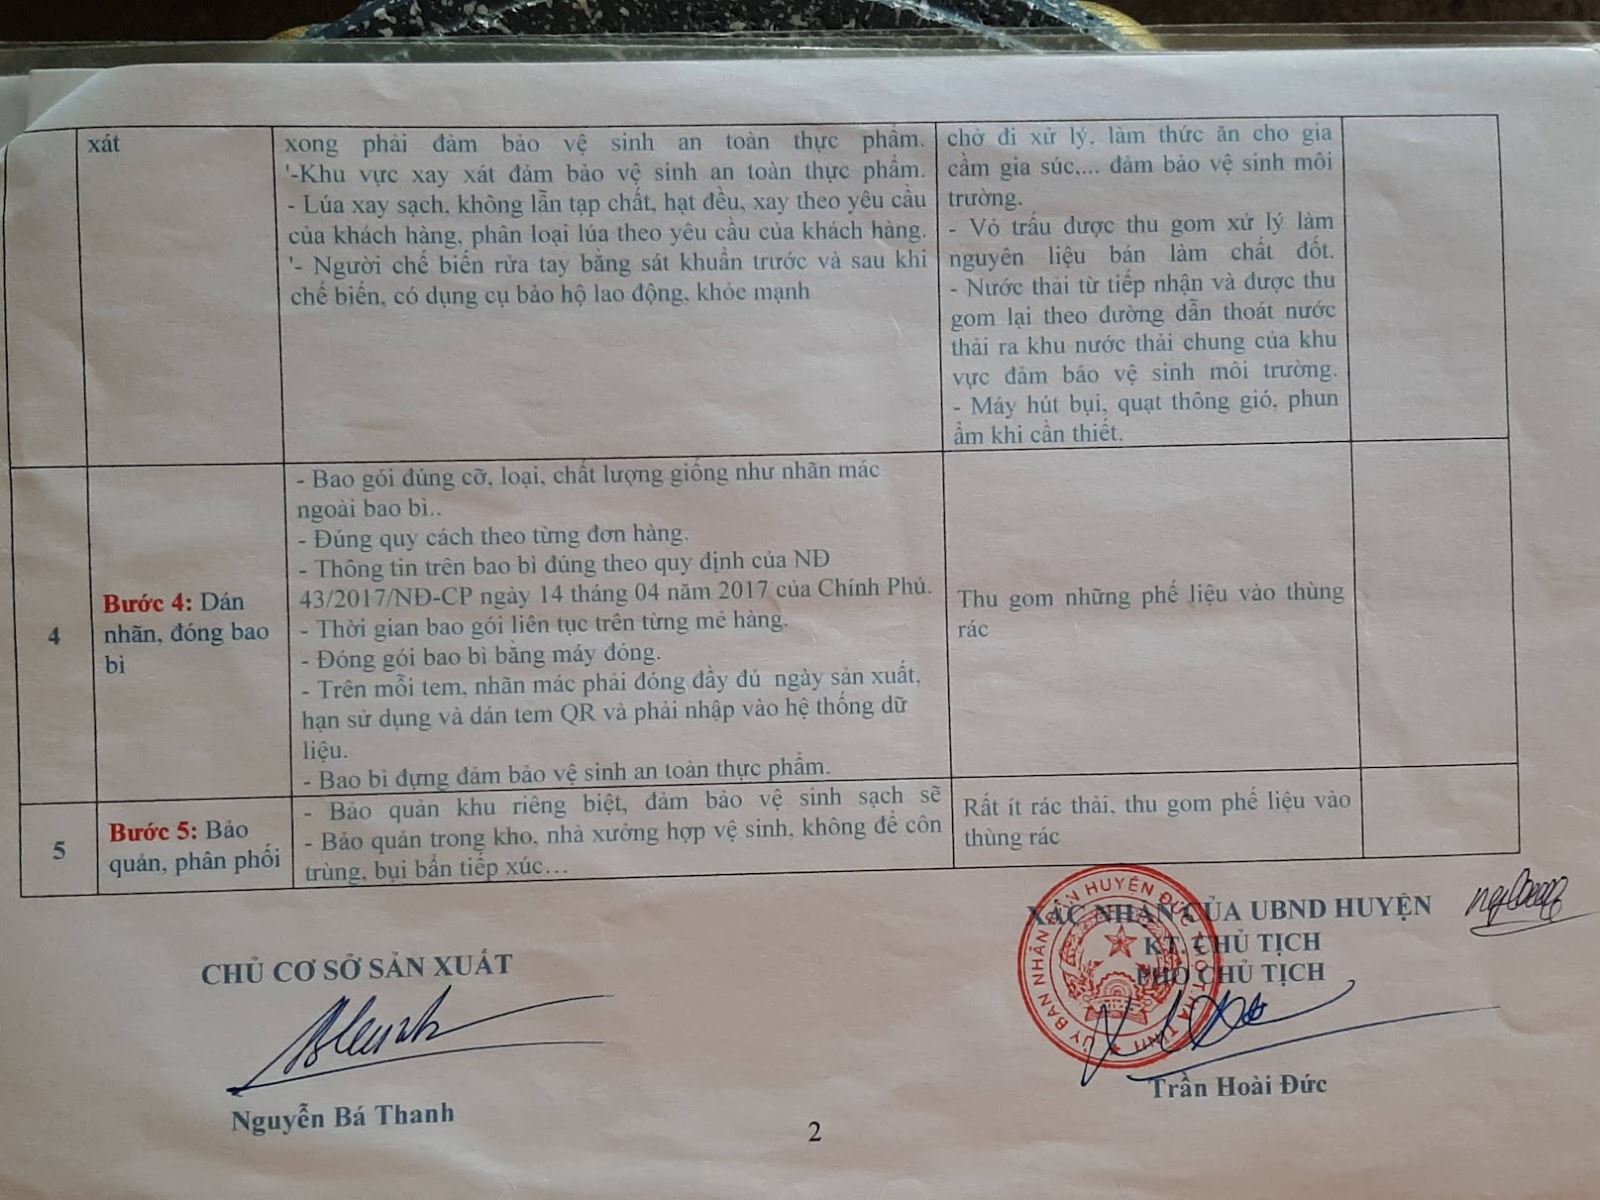 xát
xong phải đảm bảo vệ sinh an toàn thực phẩm.
'-Khu vực xay xát đảm bảo vệ sinh an toàn thực phẩm.
- Lúa xay sạch, không lẫn tạp chất, hạt đều, xay theo yêu cầu
của khách hàng, phân loại lúa theo yêu cầu của khách hàng.
'- Người chế biến rửa tay bằng sát khuẩn trước và sau khi
chế biến, có dụng cụ bảo hộ lao động, khỏe mạnh
chở đi xử lý, làm thức ăn cho gia
cầm gia súc,... đảm bảo vệ sinh môi
trường.
- Vỏ trấu được thu gom xử lý làm
nguyên liệu bán làm chất đốt.
- Nước thải từ tiếp nhận và được thu
gom lại theo đường dẫn thoát nước
thải ra khu nước thải chung của khu
vực đảm bảo vệ sinh môi trường.
- Máy hút bụi, quạt thông gió, phun
ẩm khi cần thiết.
4
Bước 4: Dán
nhãn, đóng bao
bì
- Bao gói đúng cỡ, loại, chất lượng giống như nhãn mác
ngoài bao bì..
- Đúng quy cách theo từng đơn hàng.
- Thông tin trên bao bì đúng theo quy định của NĐ
43/2017/NĐ-CP ngày 14 tháng 04 năm 2017 của Chính Phủ.
- Thời gian bao gói liên tục trên từng mẻ hàng.
- Đóng gói bao bì bằng máy đóng.
- Trên mỗi tem, nhãn mác phải đóng đầy đủ ngày sản xuất,
hạn sử dụng và dán tem QR và phải nhập vào hệ thống dữ
liệu.
- Bao bì đựng đảm bảo vệ sinh an toàn thực phẩm.
Thu gom những phế liệu vào thùng
rác
5
Bước 5: Bảo
quản, phân phối
- Bảo quản khu riêng biệt, đảm bảo vệ sinh sạch sẽ
- Bảo quản trong kho, nhà xưởng hợp vệ sinh, không để côn
trùng, bụi bẩn tiếp xúc…
Rất ít rác thải, thu gom phế liệu vào
thùng rác
CHỦ CƠ SỞ SẢN XUẤT
Nguyễn Bá Thanh
XÁC NHẬN CỦA UBND HUYỆN
KT. CHỦ TỊCH
PHÓ CHỦ TỊCH
ỦY BAN NHÂN DÂN HUYỆN ĐỨC THỌ T.HÀ TĨNH
Trần Hoài Đức
2